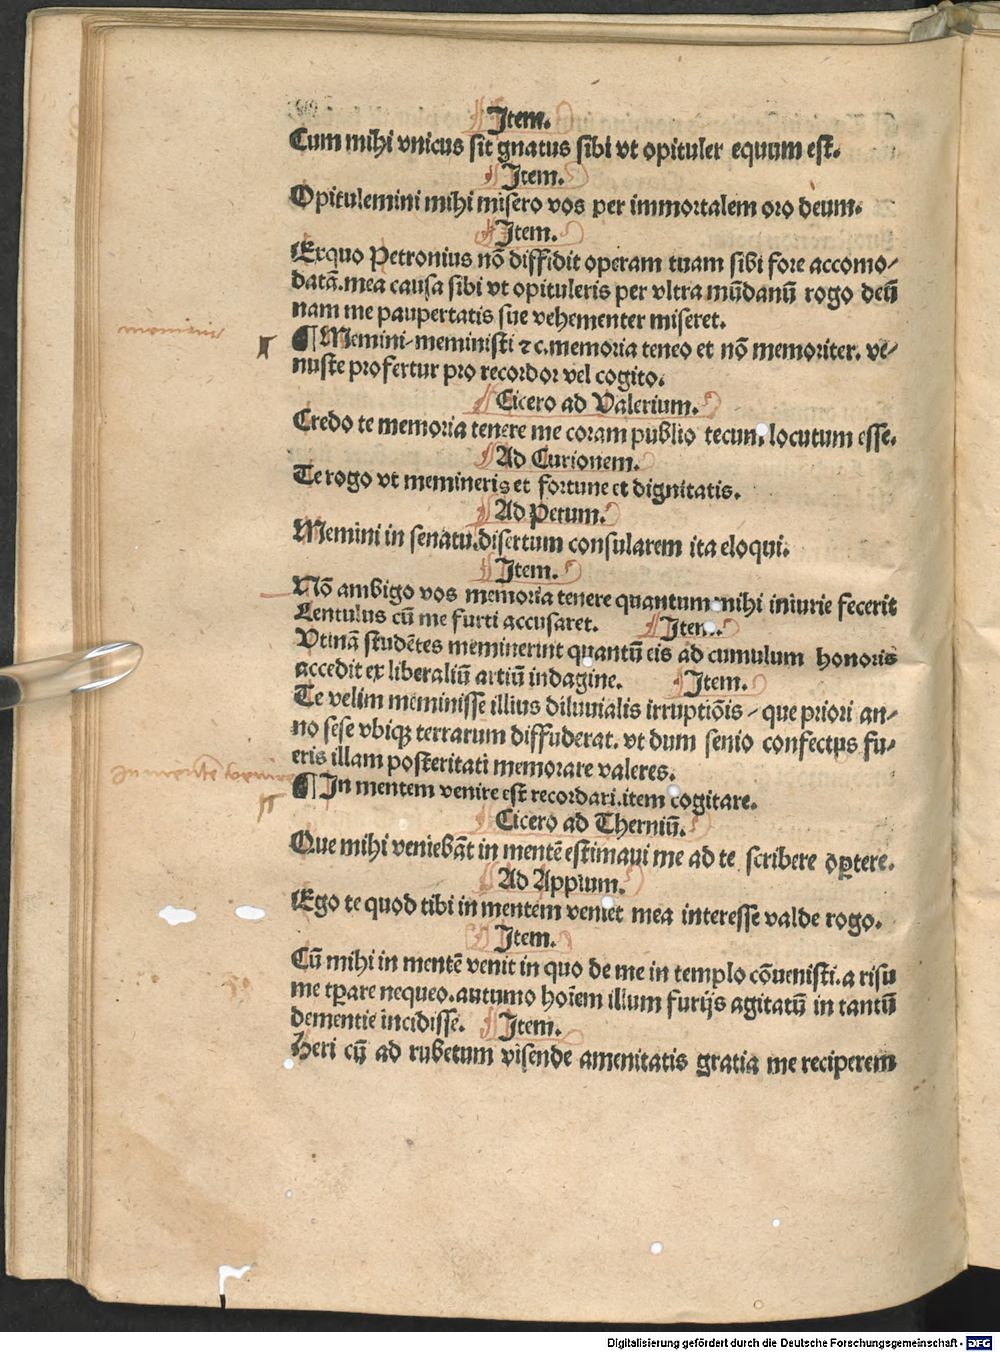 Item.
Cum mihi vnicus sit gnatus sibi vt opituler equum est.
Item.
Opitulemini mihi misero vos per immortalem oro deum.
Item.
Exquo Petronius nõ diffidit operam tuam sibi fore accomo/
datã.mea causa sibi vt opituleris per vltra mũdanũ rogo deũ
nam me paupertatis sue vehementer miseret.
memini
¶ Memini-meministi ⁊ c.memoria teneo et nõ memoriter. ve/
nuste profertur pro recordor vel cogito.
Cicero ad Valerium.
Credo te memoria tenere me coram publio tecum locutum esse.
Ad Curionem.
Te rogo vt memineris et fortune et dignitatis.
Ad Petum.
Memini in senatu.disertum consularem ita eloqui.
Item.
Nõ ambigo vos memoria tenere quantum mihi iniurie fecerit
Lentulus cũ me furti accusaret. Item.
Vtinã studẽtes meminerint quantũ eis ad cumulum honoris
accedit ex liberaliũ artiũ indagine. Item.
Te velim meminisse illius diluuialis irruptiõis / que priori an/
no sese vbiqꝫ terrarum diffuderat. vt dum senio confectus fu/
eris illam posteritati memorare valeres.
In mentẽ venire
¶ In mentem venire est recordari.item cogitare.
Cicero ad Therniũ.
Que mihi veniebãt in mentẽ estimaui me ad te scribere oꝑtere.
Ad Appium.
Ego te quod tibi in mentem veniet mea interesse valde rogo.
Item.
Cũ mihi in mentẽ venit in quo de me in templo cõuenisti.a risu
me tꝑare nequeo.autumo hoĩem illum furijs agitatũ in tantũ
dementie incidisse. Item.
Heri cũ ad rubetum visende amenitatis gratia me reciperem
Digitalisierung gefördert durch die Deutsche Forschungsgemeinschaft - DFG